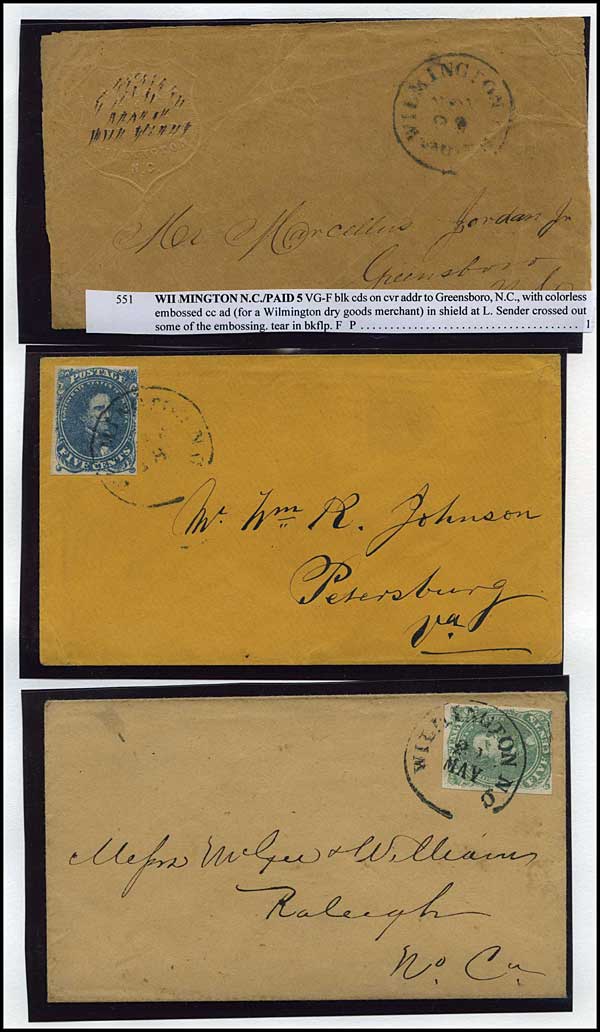 WILMINGTON
N.C.
Mr Marcellus Jordan Jr
Greensboro
N. C.
551 WILMINGTON N.C./PAID 5 VG-F blk cds on cvr addr to Greensboro, N.C., with colorless
embossed cc ad (for a Wilmington dry goods merchant) in shield at L. Sender crossed out
some of the embossing. tear in bkflp. F P ........................................ 1
POSTAGE
FIVE CENTS
N C
Mr. Wm R. Johnson
Petersburg
Va
WILMINGTON N.C.
MAY
FIVE CENTS
Messrs McGee & Williams
Raleigh
No. Ca